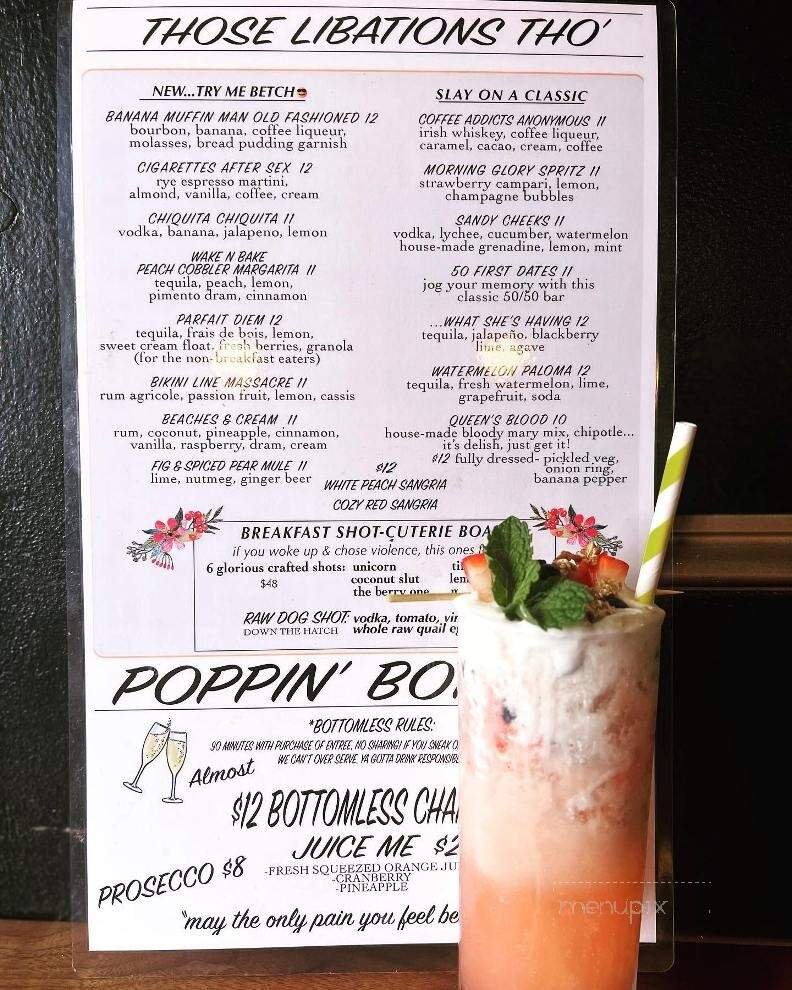 THOSE LIBATIONS THO'
NEW...TRY ME BETCH
BANANA MUFFIN MAN OLD FASHIONED 12
bourbon, banana, coffee liqueur,
molasses, bread pudding garnish
CIGARETTES AFTER SEX 12
rye espresso martini,
almond, vanilla, coffee, cream
CHIQUITA CHIQUITA 11
vodka, banana, jalapeno, lemon
WAKE N BAKE
PEACH COBBLER MARGARITA 11
tequila, peach, lemon,
pimento dram, cinnamon
PARFAIT DIEM 12
tequila, frais de bois, lemon,
sweet cream float, fresh berries, granola
(for the non-breakfast eaters)
BIKINI LINE MASSACRE 11
rum agricole, passion fruit, lemon, cassis
BEACHES & CREAM 11
rum, coconut, pineapple, cinnamon,
vanilla, raspberry, dram, cream
FIG & SPICED PEAR MULE 11
lime, nutmeg, ginger beer
SLAY ON A CLASSIC
COFFEE ADDICTS ANONYMOUS 11
irish whiskey, coffee liqueur,
caramel, cacao, cream, coffee
MORNING GLORY SPRITZ 11
strawberry campari, lemon,
champagne bubbles
SANDY CHEEKS 11
vodka, lychee, cucumber, watermelon
house-made grenadine, lemon, mint
50 FIRST DATES 11
jog your memory with this
classic 50/50 bar
...WHAT SHE'S HAVING 12
tequila, jalapeño, blackberry
lime, agave
WATERMELON PALOMA 12
tequila, fresh watermelon, lime,
grapefruit, soda
QUEEN'S BLOOD 10
house-made bloody mary mix, chipotle...
it's delish, just get it!
$12 fully dressed- pickled veg,
onion ring,
banana pepper
$12
WHITE PEACH SANGRIA
COZY RED SANGRIA
BREAKFAST SHOT-CUTERIE
if you woke up & chose violence, this ones
6 glorious crafted shots: unicorn
$48 coconut slut
the berry one
RAW DOG SHOT: vodka, tomato,
DOWN THE HATCH whole raw quail
POPPIN'
*BOTTOMLESS RULES:
90 MINUTES WITH PURCHASE OF ENTREE, NO SHARING! IF YOU SNEAK
WE CAN'T OVER SERVE, YA GOTTA DRINK
Almost
$12 BOTTOMLESS
JUICE ME
-FRESH SQUEEZED ORANGE
-CRANBERRY
-PINEAPPLE
PROSECCO $8
"may the only pain you feel
menupix